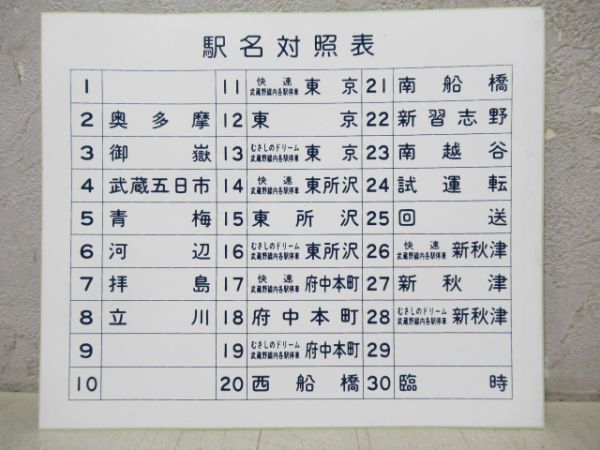 駅名対照表
1
2 奥多摩
3 御嶽
4 武蔵五日市
5 青梅
6 河辺
7 拝島
8 立川
9
10
11 快速 武蔵野線内各駅停車 東京
12 東京
13 むさしのドリーム 武蔵野線内各駅停車 東京
14 快速 武蔵野線内各駅停車 東所沢
15 東所沢
16 むさしのドリーム 武蔵野線内各駅停車 東所沢
17 快速 武蔵野線内各駅停車 府中本町
18 府中本町
19 むさしのドリーム 武蔵野線内各駅停車 府中本町
20 西船橋
21 南船橋
22 新習志野
23 南越谷
24 試運転
25 回送
26 快速 武蔵野線内各駅停車 新秋津
27 新秋津
28 むさしのドリーム 武蔵野線内各駅停車 新秋津
29
30 臨時